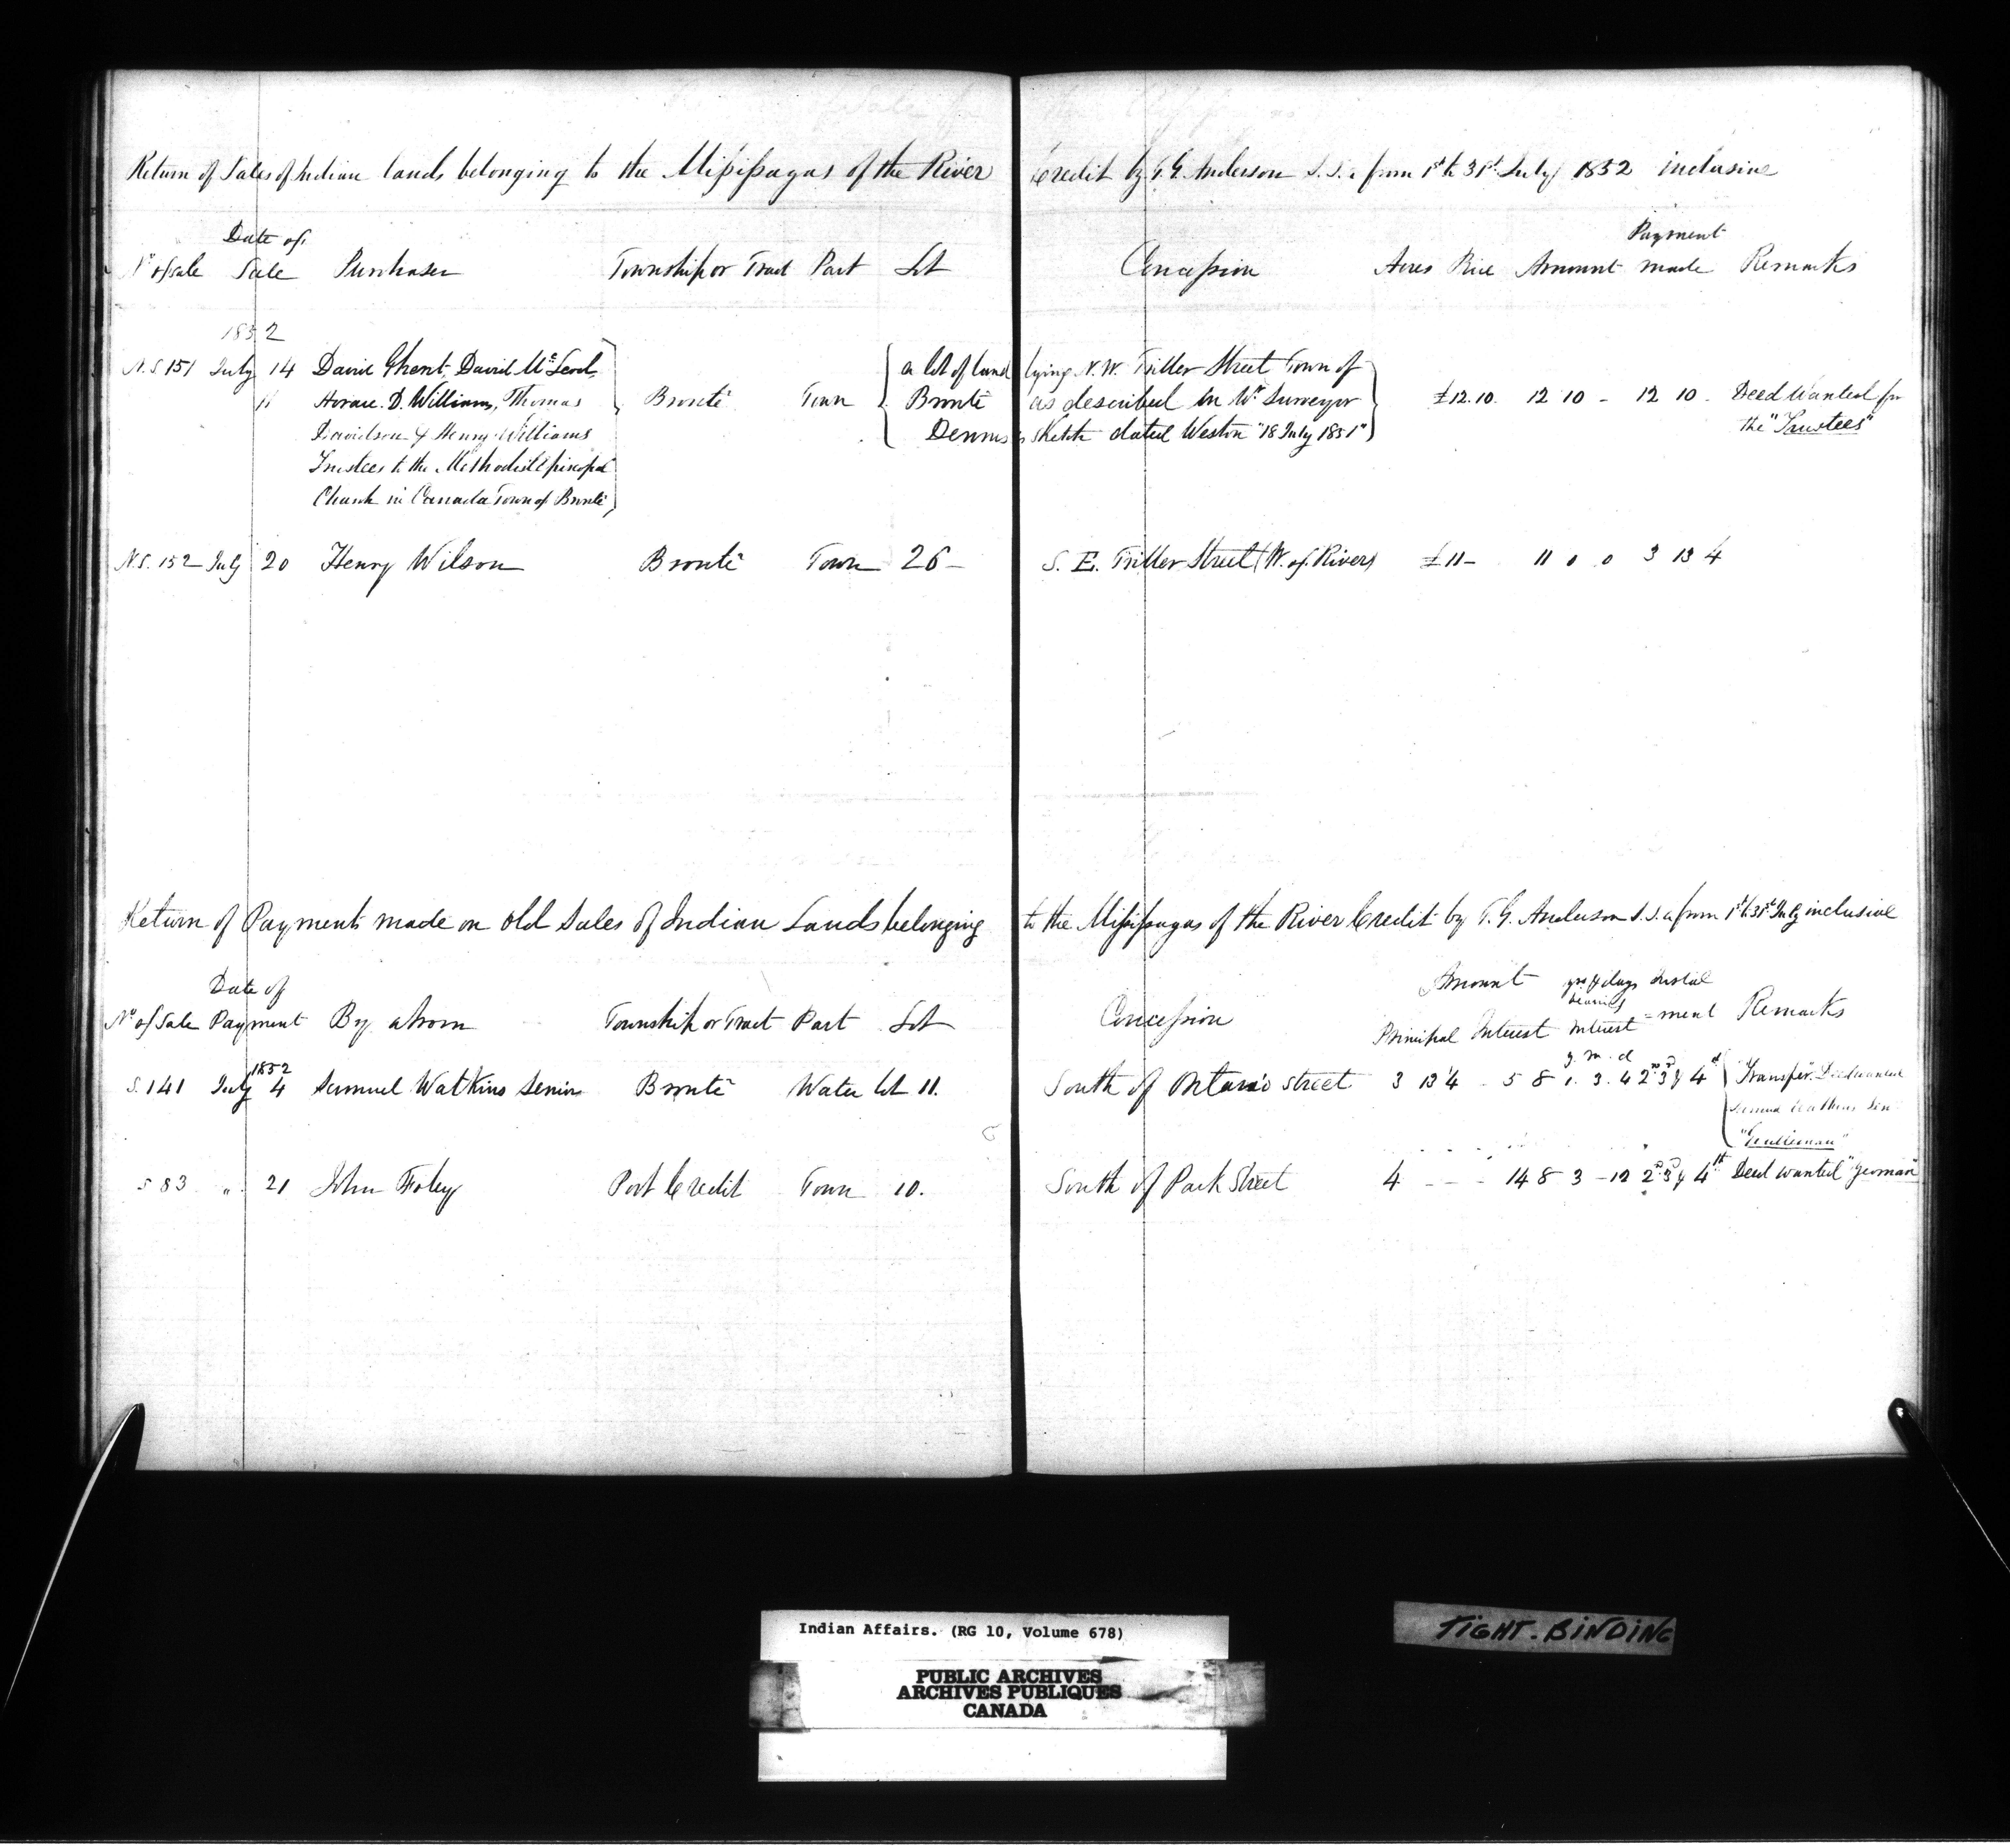 Return of Sales of Indian lands belonging to the Missisagas of the River Credit by T. G. Anderson S. I. a from 1st to 31st July 1852 inclusive
No of sale Date of Sale Purchaser Township or Tract Part Lot Concession Acres Price Amount Payment made Remarks
1852
N.S. 151 July 14 David Ghent, David McLeod, a lot of land lying N.W. Triller Street Town of
Horace D. Williams, Thomas Bronté Town Bronté as described in Wm Surveyor £12.10. 12 10 - 12 10 - Deed Wanted for
Davidson & Henry Williams Dennis's sketch dated Weston "18 July 1851" the "Trustees"
Trustees to the Methodist Episcopal
Church in Canada Town of Bronté
N.S. 152 July 20 Henry Wilson Bronté Town 26 - S. E. Triller Street (W. of River) £11 - 11 0 0 3 13 4
Return of Payments made on old Sales of Indian Lands belonging to the Missisagas of the River Credit by T. G. Anderson S. I. a from 1st to 31st July inclusive
No of Sale Date of Payment By whom Township or Tract Part Lot Concession Amount Principal Interest yrs & days bearing Interest Instal-ment Remarks
1852 y. m. d
S. 141 July 4 Samuel Watkins Senior Bronté Water lot 11. South of Ontario Street 3 13 4 - 5 8 1. 3. 4 2nd 3d & 4th Transfer. Deed wanted
Samuel Watkins Sen
"Gentleman"
S 83 " 21 John Foley Port Credit Town 10. South of Park Street 4 - - - 14 8 3 - 12 2nd 3d & 4th Deed wanted "Yeoman"
Indian Affairs. (RG 10, Volume 678)
PUBLIC ARCHIVES
ARCHIVES PUBLIQUES
CANADA
TIGHT. BINDING